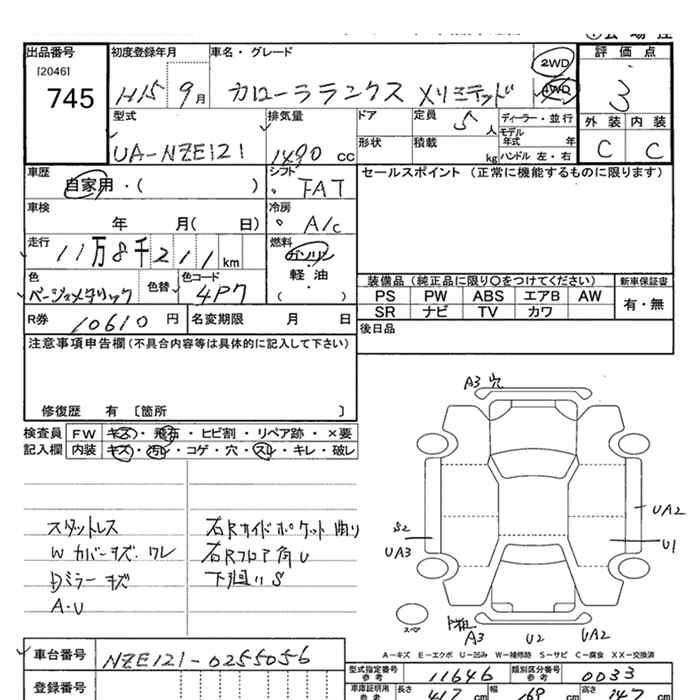 出品番号 初度登録年月 車名・グレード 2WD 評価点
[2046]
745 H15 9月 カローラランクス Xリミテッド 4WD 3
型式 排気量 ドア 定員 5人 ディーラー・並行 外装 内装
モデル年式 年
UA-NZE121 1490 cc 形状 積載 kg ハンドル 左・右 C C
車歴 シフト セールスポイント (正常に機能するものに限ります)
自家用・( ) FAT
車検 冷房
年 月( 日) A/C
走行 燃料
11万8千211km ガソリン
色 色替 色コード 軽・油
ベージュメタリック 4P7 (・)
装備品 (純正品に限り○をつけてください) 新車保証書
PS PW ABS エアB AW 有・無
SR ナビ TV カワ
R券 10610円 名変期限 月 日 後日品
注意事項申告欄 (不具合内容等は具体的に記入して下さい)
修復歴 有 [箇所 ]
検査員 FW キズ・飛石・ヒビ割・リペア跡・×要
記入欄 内装 キズ・汚レ・コゲ・穴・スレ・キレ・破レ
スタットレス
W カバーキズ、ワレ
Dミラーキズ
A・U
右Rガイドポケット曲り
右Rフロア有U
下廻りS
A3 穴
S2
UA3
UA2
U1
スペア
A3 U2 UA2
A－キズ E－エクボ U－凹み W－補修跡 S－サビ C－腐食 XX－交換済
車台番号 NZE121-0255056
型式指定番号 参考 11646 類別区分番号 参考 0033
登録番号
車庫証明用 参考 長さ 417 cm 幅 169 cm 高さ 147 cm